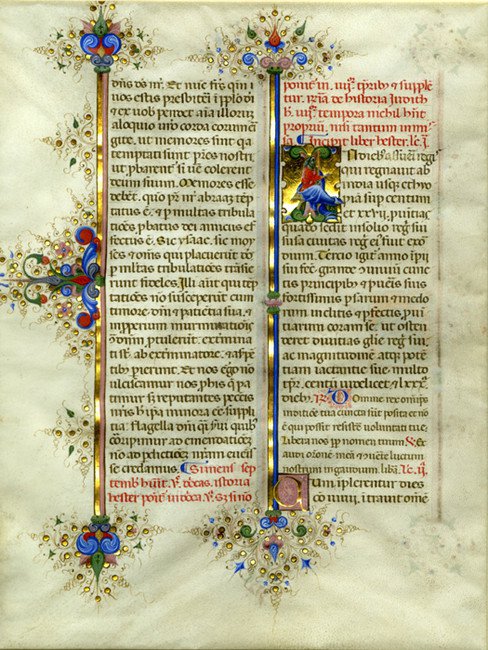 dñs ds nr̄. Et nuc frs̄ qm̄ i
uos estis presbiteri i pplo di
⁊ ex uob pendet aīa illoruȝ
aloquio uro corda eorum eri
gite. ut memores sint qa
temptati sunt p̄res nostri
ut pbarent si ue colerent
deum suum. Memores esse
debēt. quo pr̄ nr̄ abraaȝ tēp
tatus ē. ⁊ p multas tribula
tiōes pbatus dei amicus ef
fectus ē. Sic ysaac. sic moy
ses ⁊ oms qui placuerūt do
p mltas tribulatiōes trāsie
runt fideles. Illi aūt qui tēp
tatiōes nō susceperūt cum
timore dnī ⁊ patiētia sua. ⁊
imperium murmuratiōis
dnm ptulerunt. extermina
ti sūt ab exterminatore. ⁊ a sp̄ē
tib pierunt. Et nos ergo nō
ulciscamur nos. p his q̄ pa
timur sȝ reputantes peccis
nris h ip̄a minora ēē suppli
tia. flagella dnī q̄si sui quib
corripimur ad emendatiōeȝ
nō ad pditiōeȝ nram eueis
se credamus. Si mensis sep
temb hūit. v. dōcas. istoria
hester poīt in dōca. v. Sȝ si nō
ponit in. iiij. tp̄rib ⁊ supple
tur. Ira de historia Judith
h iiij. tempora nichil hn̄t
proprium nisi tantum in mis
sa. Incipit liber hester. lc. j.
N dieb assueri regis
qui regnauit ab
india usqȝ ethyo
piā sup centum
et xxvij. puitias
quādo sedit i solio regni sui
susa ciuitas regni eius fuit exor
dium. Tercio igit anno ipii
sui fec̄ grande ɔuiuiū cunc
tis principibȝ ⁊ pueris suis
fortissimis psaruȝ ⁊ medo
rum inclitis ⁊ pfectis pui
tiarum coram se. ut osten
deret diuitias glie regni sui.
ac magnitudinē atqȝ potē
tiam iactantie sue. multo
tp̄r. centū uidelicet ⁊ lxxx.
dieb. R. Domine rex omnips
in ditiōe tua cuncta sūt posita et nō
ē qui possit resistē voluntati tue.
Libera nos pp nomen tuum. V. Ex
audi orōnē nram ⁊ ɔuerte luctum
nostrum in gaudium. libera. lc. ij.
Cum implerentur dies
cōuiuij. i uitauit omē